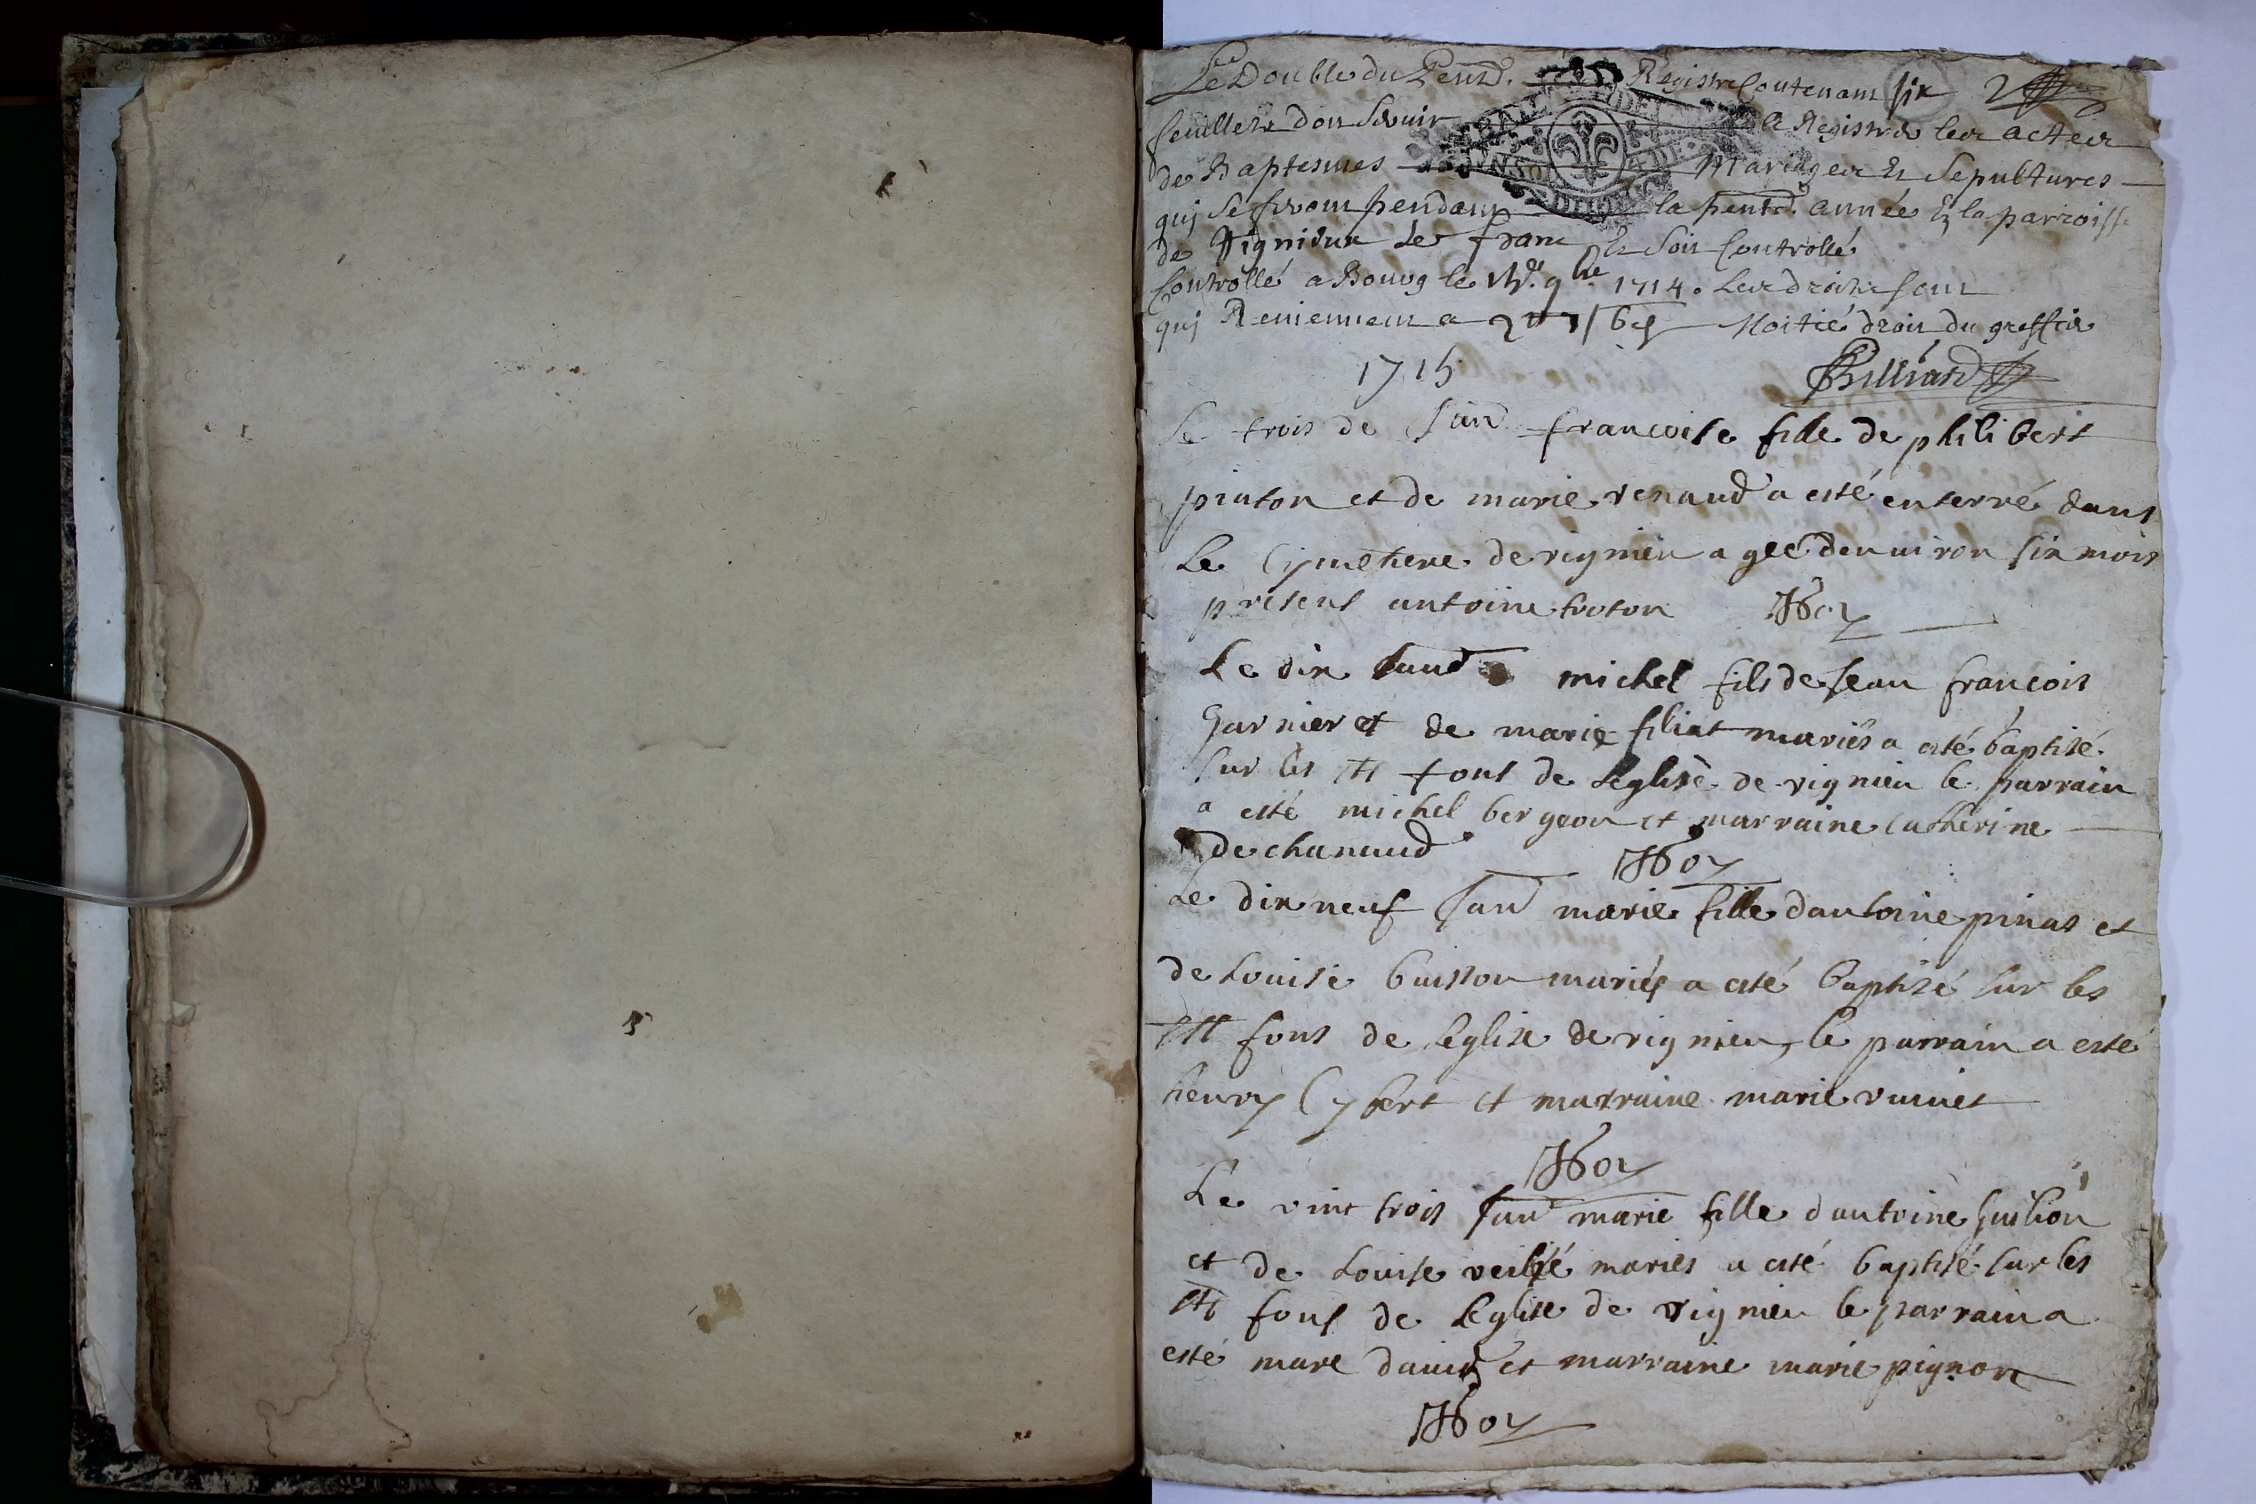 Le Double du Pent. Registre Contenant six 2
feuillets doit Servir A Registrer les actes
de Baptesmes Mariages Et Sepultures
qui se feront pendant la pente. année En la parroisse
de Vignieux Le franc Et Soit Controllé
Controllé a Bourg le 9bre 1714. Les droits sont
qui Reviennent a Moitié droit du greffier
1715 Billiard
Le trois de Janv francoise fille de philibert
pinton et de marie renaud a esté enterré dans
Le Cymethere de vignieu ageé denviron six mois
present antoine troton
Le dix Janv michel fils de Jean françois
Garnier et de marie filiat mariés a esté baptisé
sur les sts fons de Leglise de vignieu le parrain
a esté michel bergeon et marraine catherine
de chanaud
Le dix neuf Janv marie fille dantoine pinas et
de Louise buisson mariés a esté baptisé sur les
sts fons de Leglise de vignieu, le parrain a esté
henry Cybert et marraine marie
Le vint trois Janv marie fille dantoine Guilion
et de Louise mariés a esté baptisé sur les
sts fons de Leglise de vignieu le parrain a
esté marc david et marraine marie pignon